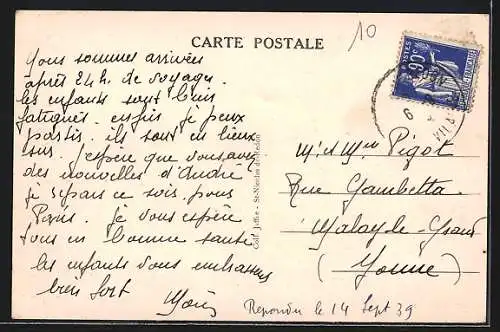 10
CARTE POSTALE
POSTES
90c
Vous sommes arrivées
après 24h. de voyage.
les enfants sont bien
fatigués. enfin je peux
partir. ils sont en lieux
sur. j'espère que vous avez
des nouvelles d'André
je repars ce soir pour
Paris. je vous espère
tous en bonne santé
les enfants vous embrassent
bien fort
M. et Mme Pigot
Rue Gambetta
Malay-le-Grand
(Yonne)
Repondu le 14 Sept 39
Coll. Jeffce - St-Nicolas-de-Redon